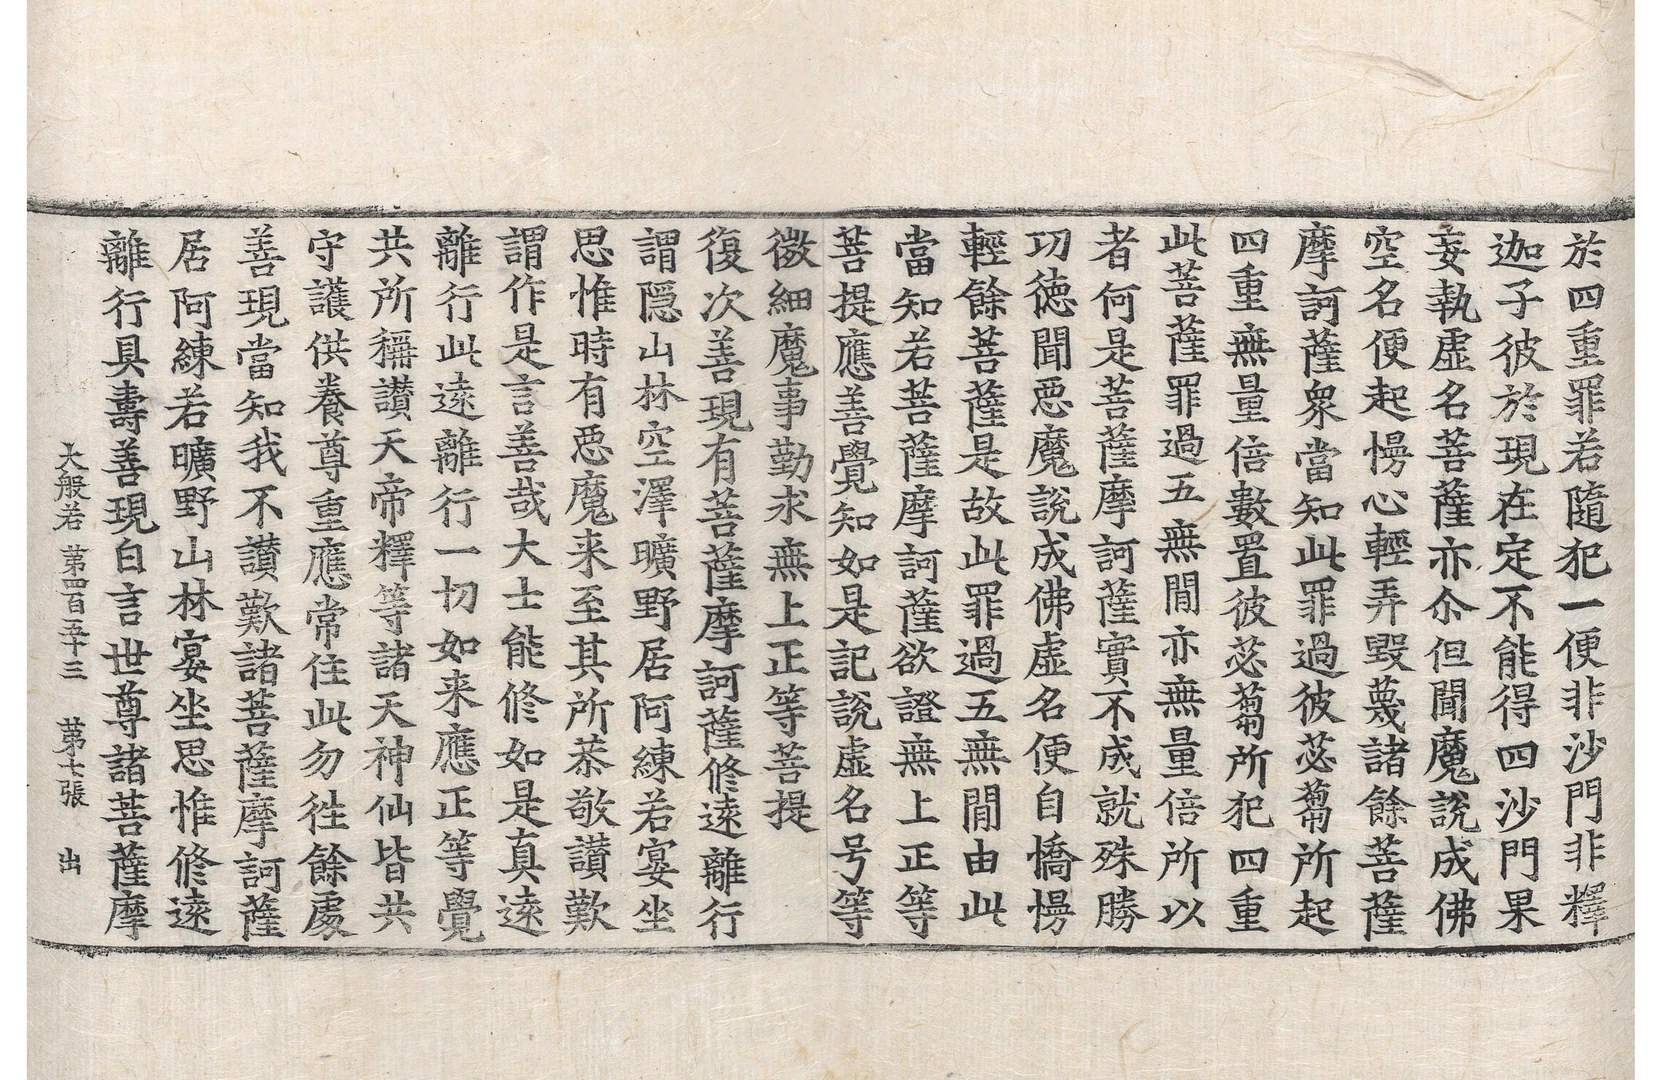 於四重罪若隨犯一便非沙門非釋
迦子彼於現在定不能得四沙門果
妄執虛名菩薩亦尒但聞魔說成佛
空名便起慢心輕弄毀蔑諸餘菩薩
摩訶薩衆當知此罪過彼苾蒭所起
四重無量倍數置彼苾蒭所犯四重
此菩薩罪過五無閒亦無量倍所以
者何是菩薩摩訶薩實不成就殊勝
功德聞惡魔說成佛虛名便自憍慢
輕餘菩薩是故此罪過五無閒由此
當知若菩薩摩訶薩欲證無上正等
菩提應善覺知如是記說虛名号等
微細魔事勤求無上正等菩提
復次善現有菩薩摩訶薩修遠離行
謂隱山林空澤曠野居阿練若宴坐
思惟時有惡魔来至其所恭敬讃歎
謂作是言善哉大士能修如是真遠
離行此遠離行一切如来應正等覺
共所稱讃天帝釋等諸天神仙皆共
守護供養尊重應常住此勿徃餘處
善現當知我不讃歎諸菩薩摩訶薩
居阿練若曠野山林宴坐思惟修遠
離行具壽善現白言世尊諸菩薩摩
大般若 第四百五十三 第七張 出